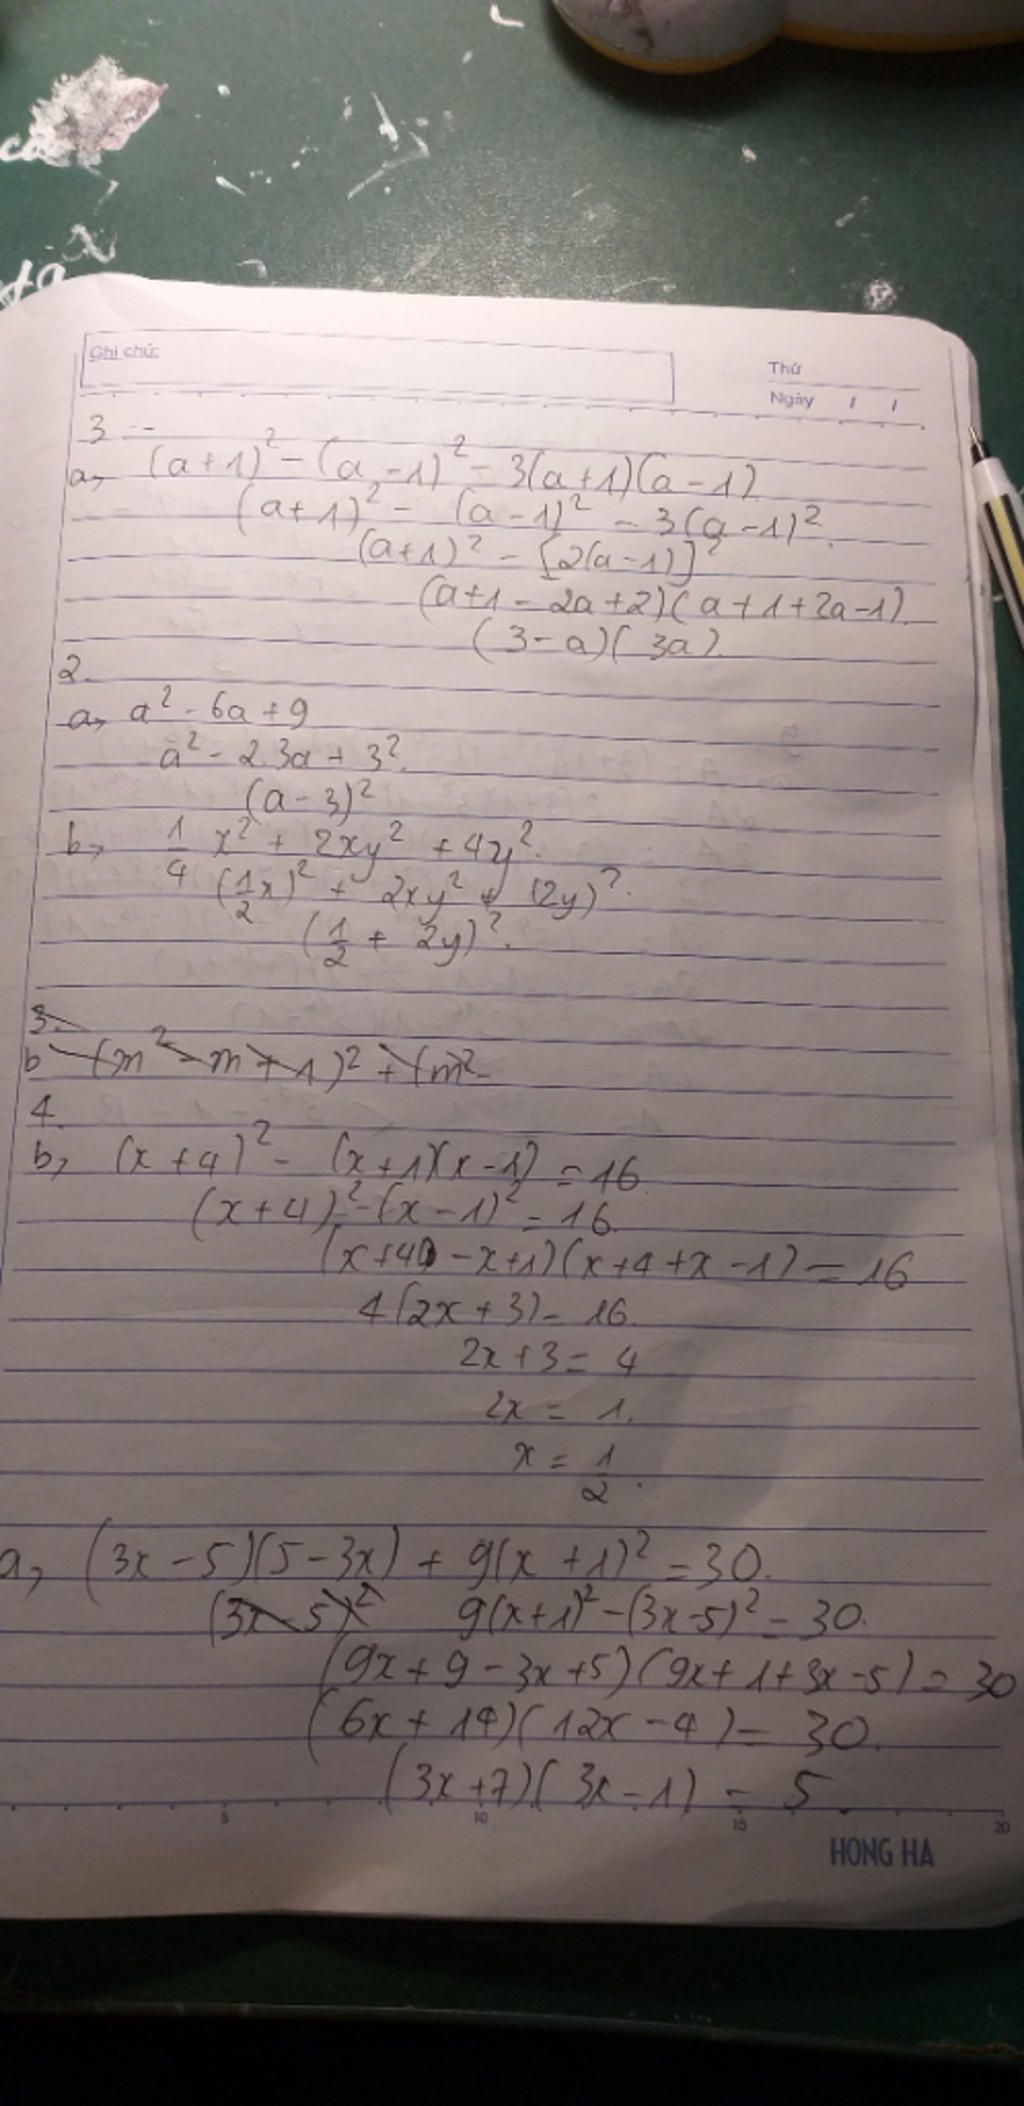 Ghi chú:
Thứ
Ngày / /
3
a, (a+1)² - (a-1)² - 3(a+1)(a-1)
(a+1)² - (a-1)² - 3(a-1)².
(a+1)² - [2(a-1)]²
(a+1-2a+2)(a+1+2a-1).
(3-a)(3a).
2.
a, a² - 6a + 9
a² - 2.3a + 3².
(a-3)²
b, 1/4 x² + 2xy² + 4y².
(1/2x)² + 2xy² + (2y)².
(1/2 + 2y)².
3.
b (m² - m + 1)² + (m² -
4.
b, (x+4)² - (x+1)(x-1) = 16.
(x+4)² - (x-1)² = 16.
(x+4 - x+1)(x+4+x-1) = 16
4(2x+3) = 16.
2x+3 = 4
2x = 1.
x = 1/2.
a, (3x-5)(5-3x) + 9(x+1)² = 30.
(3x-5)² 9(x+1)² - (3x-5)² = 30.
(9x+9-3x+5)(9x+1+3x-5) = 30
(6x+14)(12x-4) = 30.
(3x+7)(3x-1) = 5
5 10 15 20
HONG HA